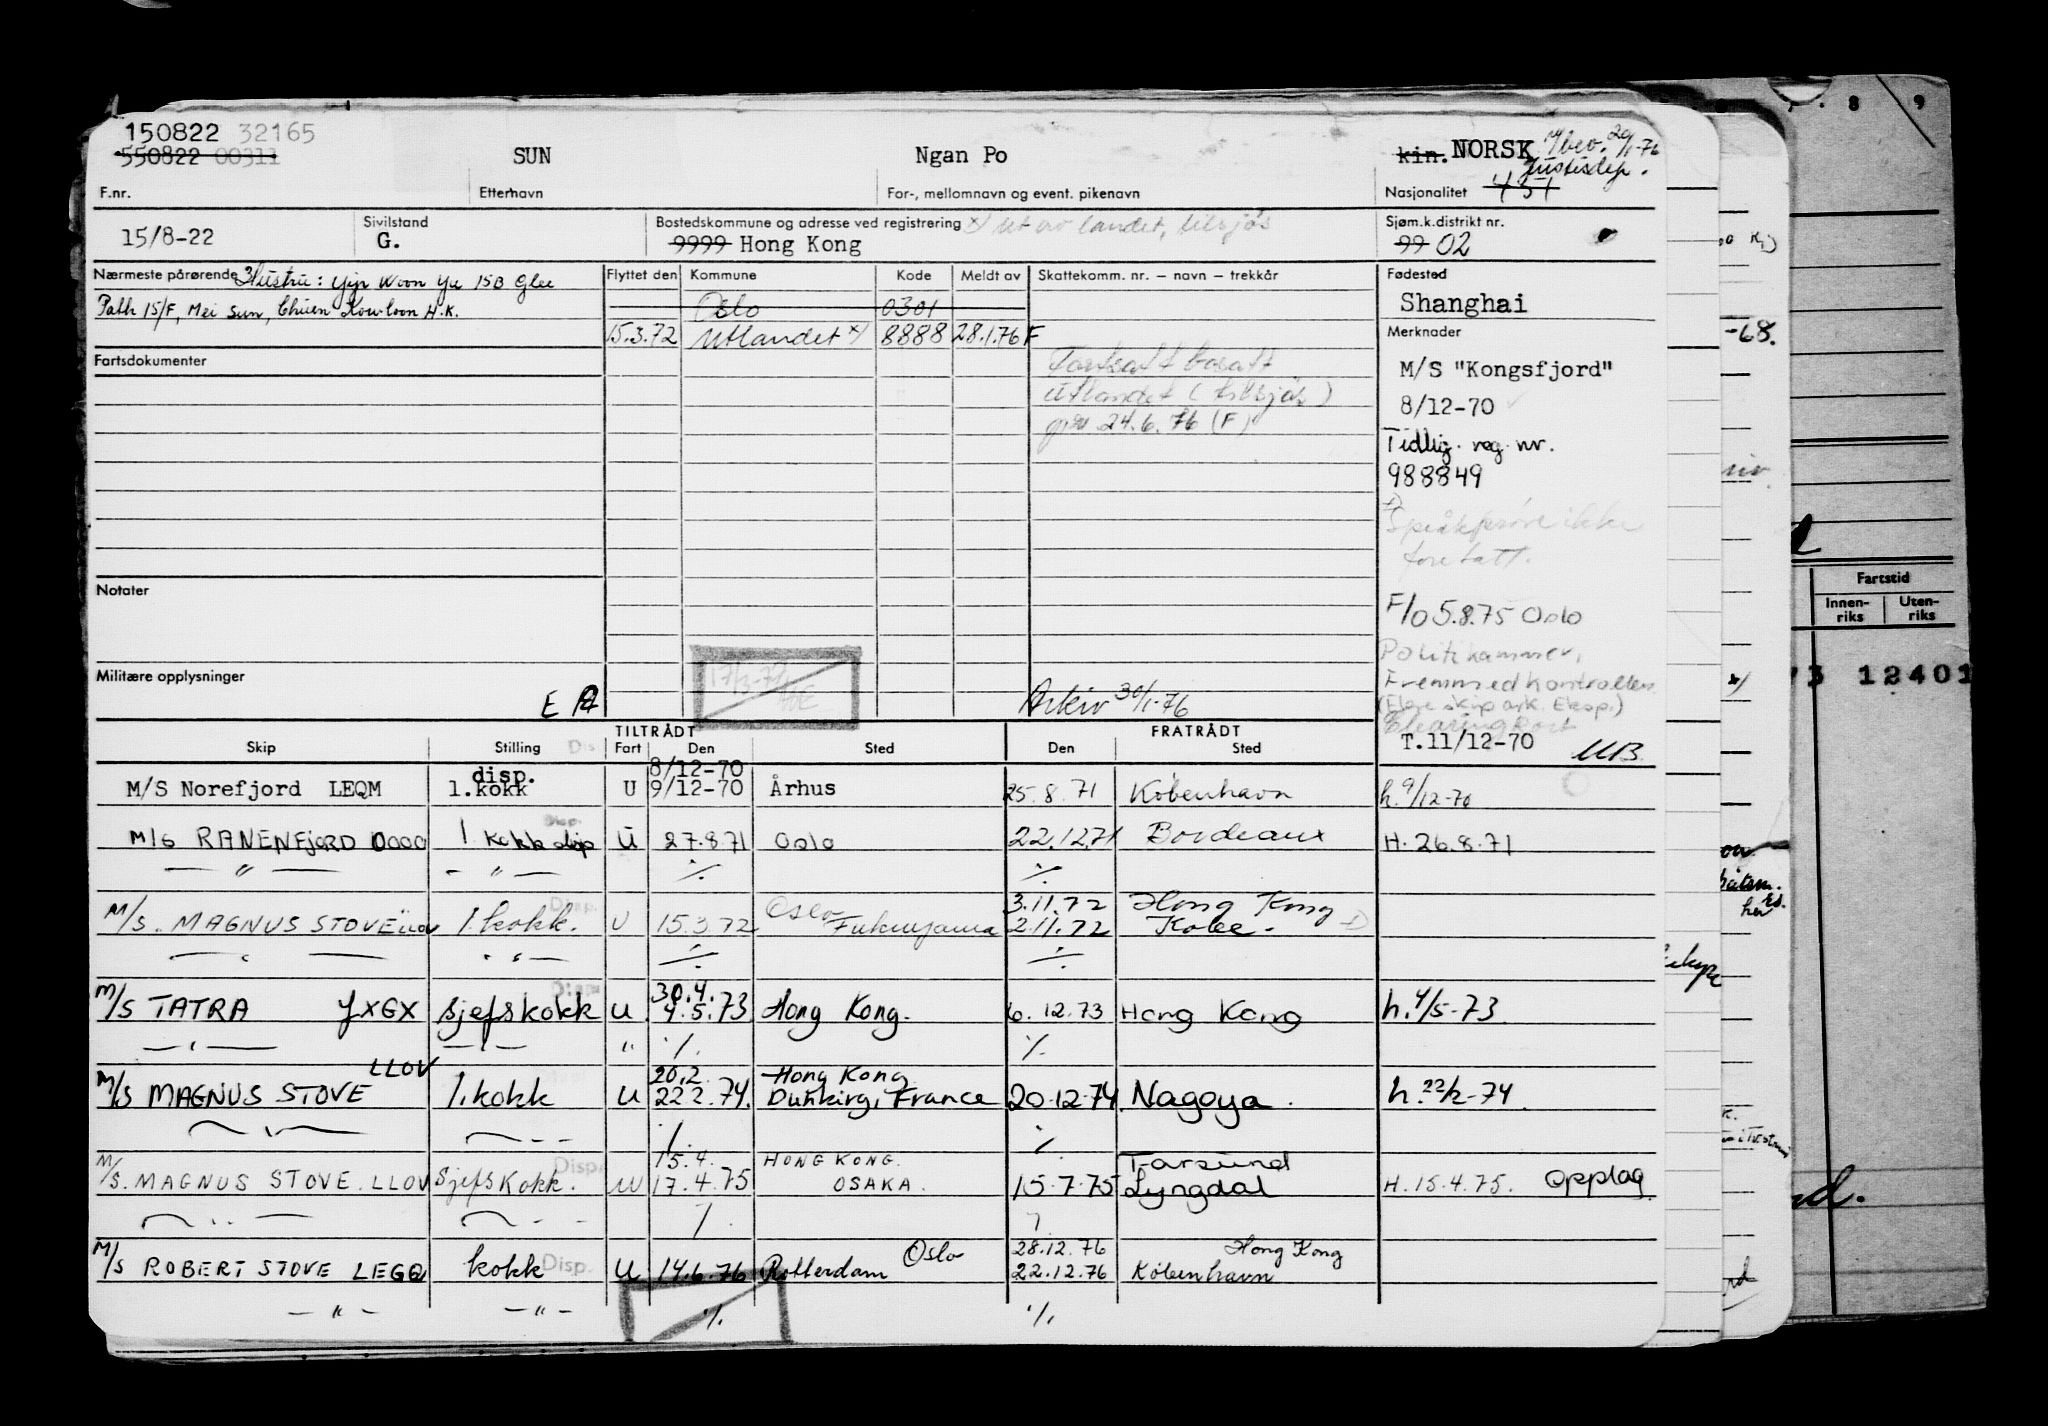 150822 32165
550822 00311
SUN
Ngan Po
kin. NORSK
bev. 20/1-76
Justisdep.
F.nr.
Etternavn
For-, mellomnavn og event. pikenavn
Nasjonalitet 451
15/8-22
Sivilstand
G.
Bostedskommune og adresse ved registrering x) Ut av landet, tilsjøs
9999 Hong Kong
Sjøm.k.distrikt nr.
99 02
Nærmeste pårørende Hustru: Yip Woon Yu 15B Glee
Path 15/F, Mei Sun, Chuen Kowloon H.K.
Flyttet den Kommune Kode Meldt av Skattekomm. nr. – navn – trekkår
Oslo 0301
15.3.72 Utlandet x) 8888 28.1.76 F
Fortsatt bosatt
utlandet (tilsjøs)
pr. 24.6.76 (F)
Fødested
Shanghai
Merknader
M/S "Kongsfjord"
8/12-70
Tidlig. reg. nr.
988849
1)
Språkprøve ikke
foretatt.
F/O 5.8.75 Oslo
Politikammer,
Fremmedkontrollen
T.11/12-70
Fartsdokumenter
Notater
Militære opplysninger
E
17/3-72
Arkiv 30/1-76
TILTRÅDT FRATRÅDT
Skip Stilling Fart Den Sted Den Sted
M/S Norefjord LEQM disp. 1.kokk U 8/12-70 9/12-70 Århus 25.8.71 København h. 9/12-70
M/S RANENFJORD 1 kokk disp U 27.8.71 Oslo 22.12.71 Bordeaux H. 26.8.71
— " — - " — ·/. ·/.
M/S. MAGNUS STOVE LLOV 1. kokk. Disp. U 15.3.72 Oslo Fukuyama 3.11.72 2.11.72 Hong Kong Kobe. 1)
— " — - " — ·/. ·/.
M/S TATRA JXGX Sjefskokk Disp U 30.4. 4.5.73 Hong Kong. 6.12.73 Hong Kong h. 4/5-73
— " — — " — " ·/. ·/.
M/S MAGNUS STOVE LLOV 1. kokk U 20.2. 22.2.74. Hong Kong Dunkirg, France 20.12.74 Nagoya. h. 22/2-74
— " — — " — ·/. ·/.
M/S. MAGNUS STOVE. LLOV Sjefskokk. Disp U 15.4. 17.4.75 HONG KONG. OSAKA. 15.7.75 Farsund Lyngdal H. 15.4.75. Opplag
— " — — " — ·/. ·/.
M/S ROBERT STOVE LEGQ kokk Disp. U 14.6.76 Rotterdam Oslo 28.12.76 22.12.76 Hong Kong København
— " — — " — ·/. ·/.
8 9
-68.
Fartstid
Innen-
riks
Uten-
riks
73 12401